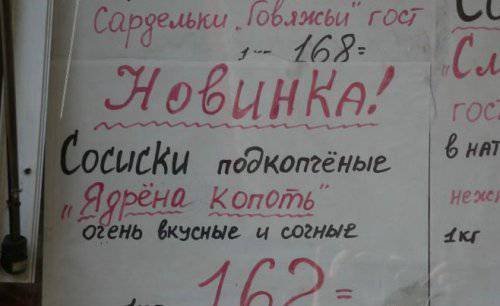 Сардельки "Говяжьи" гост
1--- 168=
Новинка!
Сосиски подкопчёные
"Ядрёна копоть"
очень вкусные и сочные
162=
в нат
1кг